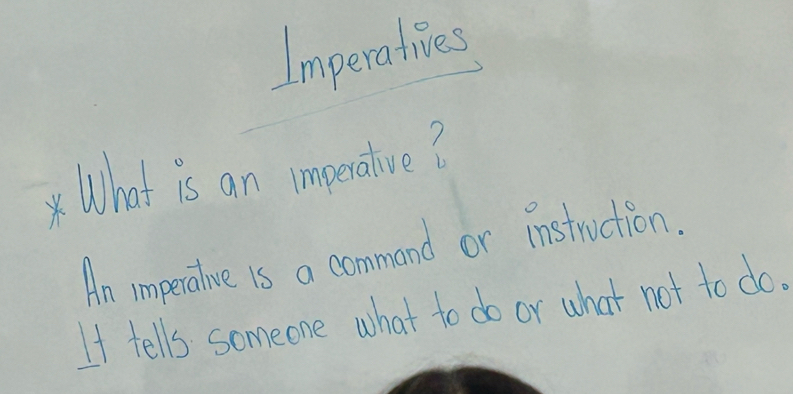 Imperatives
* What is an imperative?
An imperative is a command or instruction.
It tells someone what to do or what not to do.